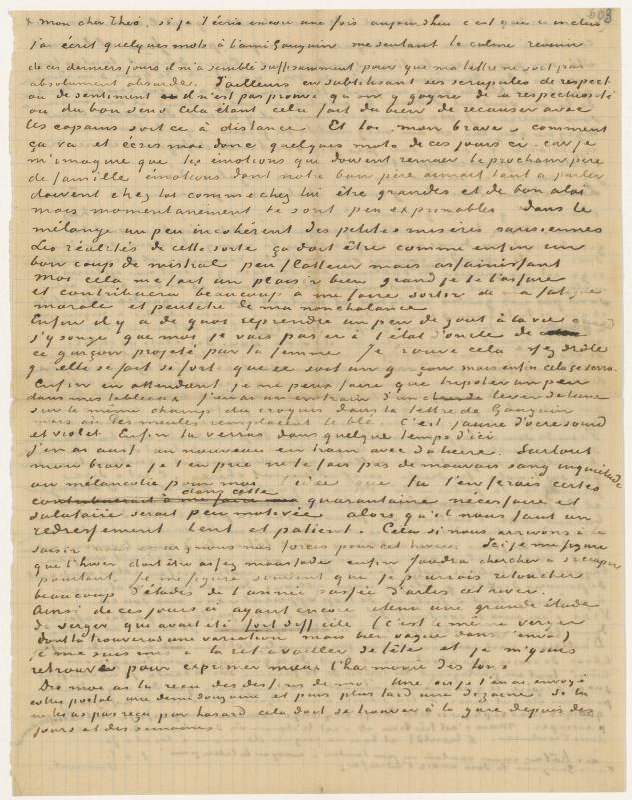 603
Mon cher Theo, si je t'écris encore une fois aujourd'hui c'est que j'inclus
j'ai écrit quelques mots à l'ami Gauguin me sentant le calme revenir
de ces derniers jours il m'a semblé suffisamment pour que ma lettre ne soit pas
absolument absurde. D'ailleurs en subtilisant ses scrupules de respect
ou de sentiment il n'est pas prouvé qu'on y gagne de la respectuosité
ou du bon sens Cela étant cela fait du bien de recauser avec
les copains soit ce à distance Et toi mon brave comment
ça va et écris moi donc quelques mots de ces jours ci car je
m'imagine que les émotions qui doivent remuer le prochain père
de famille émotions dont notre bon père aimait tant à parler
doivent chez toi comme chez lui être grandes et de bon aloi
mais momentanément te sont peu exprimables dans le
mélange un peu incohérent des petites misères parisiennes
Les réalités de cette sorte ça doit être comme enfin un
bon coup de mistral peu flatteur mais assainissant
Moi cela me fait un plaisir bien grand je te l'assure
et contribuera beaucoup à me faire sortir de ma fatigue
morale et peutêtre de ma nonchalance
Enfin il y a de quoi reprendre un peu de gout à la vie
j'y songe que moi je vais passer à l'état d'oncle de
ce garçon projeté par ta femme Je trouve cela assez drôle
qu'elle se fait si fort que ce soit un garçon mais enfin cela se verra.
Enfin en attendant je ne peux faire que tripoter un peu
dans mes tableaux j'en ai un en train d'un lever de lune
sur le même champ du croquis dans la lettre de Gauguin
mais où des meules remplacent le blé. C'est jaune d'ocre sourd
et violet. Enfin tu verras dans quelque temps d'ici
J'en ai aussi un nouveau en train avec du lierre. Surtout
mon brave je t'en prie ne te fais pas de mauvais sang inquiétude
ou mélancolie pour moi l'idée que tu t'en ferais certes
dans cette
quarantaine nécessaire et
salutaire serait peu motivée alors qu'il nous faut un
redressement lent et patient. Cela si nous arrivons à le
saisir nous épargnons nos forces pour cet hiver. Ici je me figure
que l'hiver doit être assez maussade enfin faudra chercher à s'occuper
pourtant. Je me figure souvent que je pourrais retoucher
beaucoup d'études de l'année passée d'Arles cet hiver.
Ainsi de ces jours ci ayant encore retenu une grande étude
de verger qui avait été fort difficile (c'est le même verger
dont tu trouveras une variation mais bien vague dans l'envoi)
je me suis mis à la retravailler de tête et je m'y suis
retrouvé pour exprimer mieux l'harmonie des tons
Dis moi as tu reçu des dessins de moi Une fois je t'en ai envoyé
colis postal une demi douzaine et puis plus tard une dizaine si tu
ne les as pas reçu par hasard cela doit se trouver à la gare depuis des
jours et des semaines